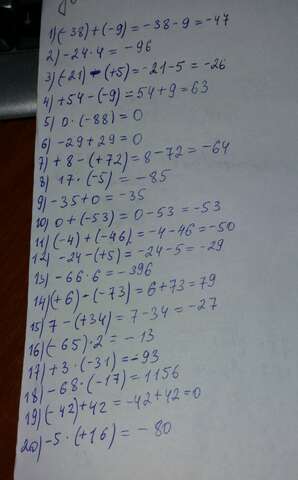 1) (-38) + (-9) = -38 - 9 = -47
2) -24 · 4 = -96
3) (-21) - (+5) = -21 - 5 = -26
4) +54 - (-9) = 54 + 9 = 63
5) 0 · (-88) = 0
6) -29 + 29 = 0
7) +8 - (+72) = 8 - 72 = -64
8) 17 · (-5) = -85
9) -35 + 0 = -35
10) 0 + (-53) = 0 - 53 = -53
11) (-4) + (-46) = -4 - 46 = -50
12) -24 - (+5) = -24 - 5 = -29
13) -66 · 6 = -396
14) (+6) - (-73) = 6 + 73 = 79
15) 7 - (+34) = 7 - 34 = -27
16) (-65) · 2 = -13
17) +3 · (-31) = -93
18) -68 · (-17) = 1156
19) (-42) + 42 = -42 + 42 = 0
20) -5 · (+16) = -80